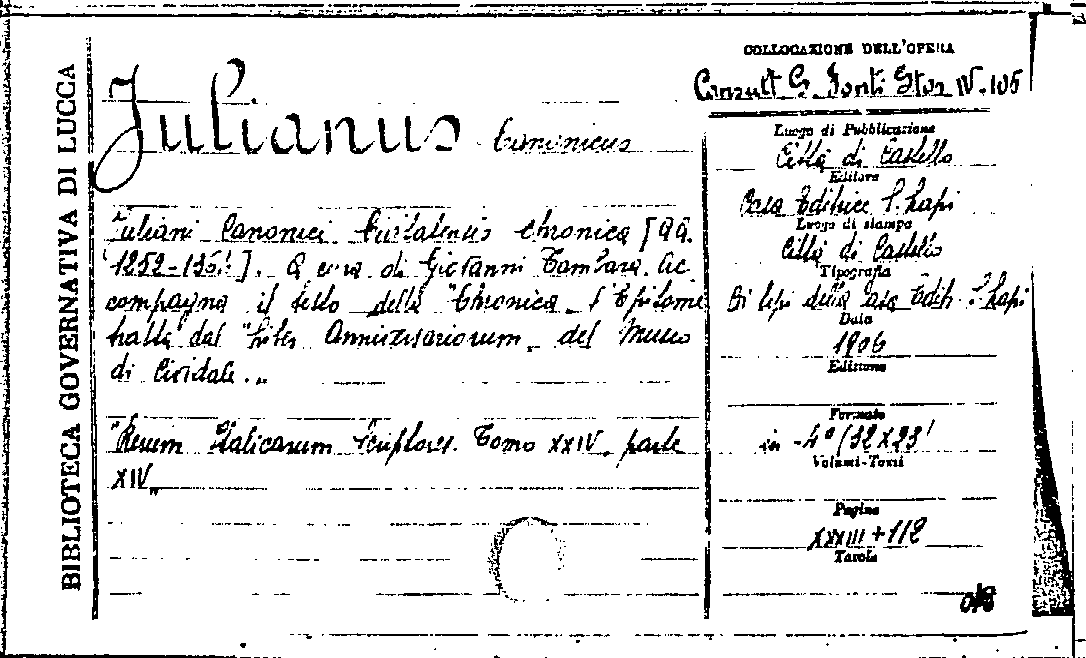 BIBLIOTECA GOVERNATIVA DI LUCCA
Julianus Canonicus
Juliani Canonici Civitatensis Chronica [aa.
1252-1364]. A cura di Giovanni Tambara. Ac
compagna il testo della "Chronica" l'Epitome
tratta dal "Liber Anniversariorum" del Museo
di Cividale."
"Rerum Italicarum Scriptores. Tomo XXIV, parte
XIV"
COLLOCAZIONE DELL'OPERA
Consult G. Fonti Stor IV. 105
Luogo di Pubblicazione
Città di Castello
Editore
Casa Editrice S. Lapi
Luogo di stampa
Città di Castello
Tipografia
Tipi della Casa Edit. S. Lapi
Data
1906
Edizione
Formato
in -4° (32X23)
Volumi-Tomi
Pagine
XXXIII + 112
Tavole